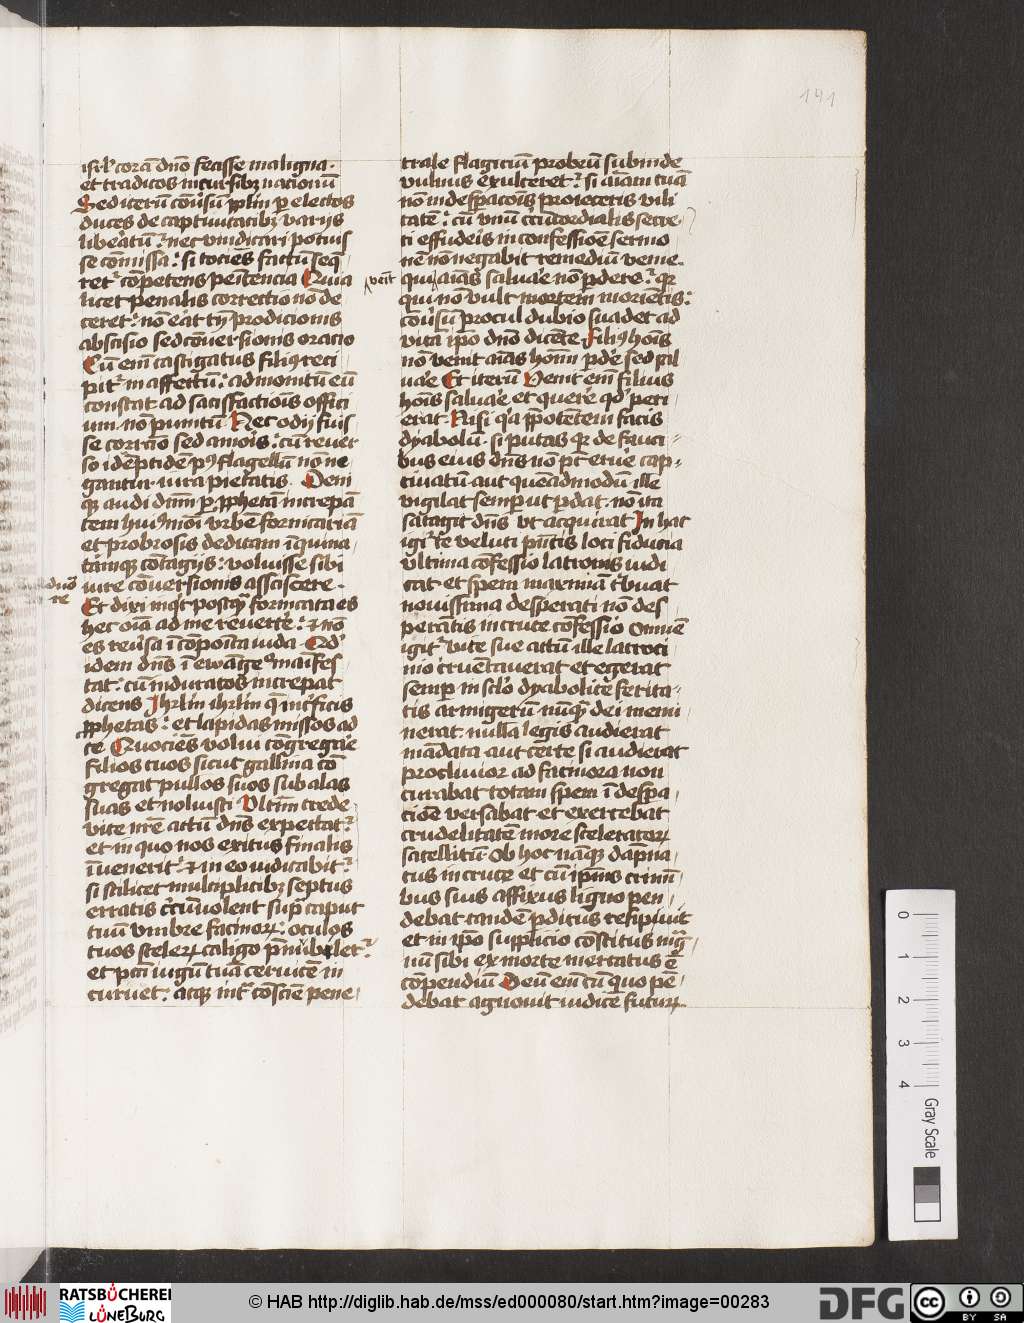 141
isrl' cora dno fecisse maligna.
et traditos incursibz nacionū
Sed iterū cōuersū pplm per electos
duces de captiuitatibz varijs
liberatū : nec vindicari potius
se cōmissa : si tociēs factū seq
ret' cōpetens penitencia Quia
licet penalis correctio nō de
ceret : nō erat tn prodicionis
abscisio sed cōuersionis oracio
Cū em castigatus filius reci
pit' in affectū : admonitū eū
constat ad satisfactiōis offici
um. nō punitū Nec odij fuis
se correctio sed amoris : cū reuer
so idēptidē p9 flagellū nō ne
gantur iura pietatis. Deni
qz audi dnm per pphetā increpā
tem hui9mōi vrbē fornicariā
et probrosis deditam īquina
tamqz cōtagijs : voluisse sibi
iure cōuersionis assciscere.
Et dixi inqt postqz fornicata es
hec oīa ad me reuertere : et nō
es reuersa īcōposita iuda Qd'
idem dns ī ewangelio manifes
tat : cū induratos increpat
dicens Ihrlm ihrlm que intficis
pphetas : et lapidas missos ad
te Quociēs volui cōgregare
filios tuos sicut gallina cō
gregat pullos suos sub alas
suas et noluisti Vltim crede
vite nre actū dns expectat'
et in quo nos exitus finalis
īuenerit : et in eo iudicabit'
si scilicet multiplicibz septus
erratis circūuolent sup caput
tuū vmbre facinorz : oculos
tuos scelerz caligo p nubilet'
et pcti iugū tuā ceruicē in
curuet : atqz int' cōsciē pene
trale flagiciū probrū subinde
vulnus exulceret : si aīam tuā
nō in desperacōis proieceris vili
tate : cū vnū circūcordialis secre
ti effuderis in confessiōe sermo
nē nō negabit remediū venie.
venit
qui aīas saluare nō pdere : qz
qui nō vult mortem morientis :
cōuersū procul dubio suadet ad
vitā ipo dno dicēte Filius hoīs
nō venit aīas homī pdere sed sal
uare Et iterū Venit em filius
hoīs saluare et querere qd peri
erat. Nisi qa ppotētem facis
dyabolū. si putas qz de fauci
bus eius dns nō pt eruere cap
tiuatū aut quēadmodū ille
vigilat semper vt pdat. nō ita
satagit dns vt acquirat In hac
igit' re veluti pntis loci fiducia
vltima cōfessio latronis iudi
cat et spem maximā tbuat
nouissima desperati nō des
perātis in cruce cōfessio Omnē
igit' vite sue actū ille latroci
nio cruētauerat et egerat
semper in scelo dyabolice ferita
tis armigerū nūqz dei memi
nerat. nulla legis audierat
mādata aut certe si audierat
procliuior ad facinora non
curabat totam spem ī despa
ciōe versabat et exercebat
crudelitatem more sceleratorz
satellitū. Ob hoc nāqz dāpna
tus in cruce et cū ipius crimi
bus suis affixus ligno pen
debat tandē pditus resipiuit
et in ipo supplicio cōstitus mg
nū sibi ex morte mercatus ē
cōpendiū Deū em cū quo pē
debat agnouit iudicē futurz
© HAB http://diglib.hab.de/mss/ed000080/start.htm?image=00283
RATSBÜCHEREI
LÜNEBURG
DFG
cc BY SA
0 1 2 3 4 Gray Scale